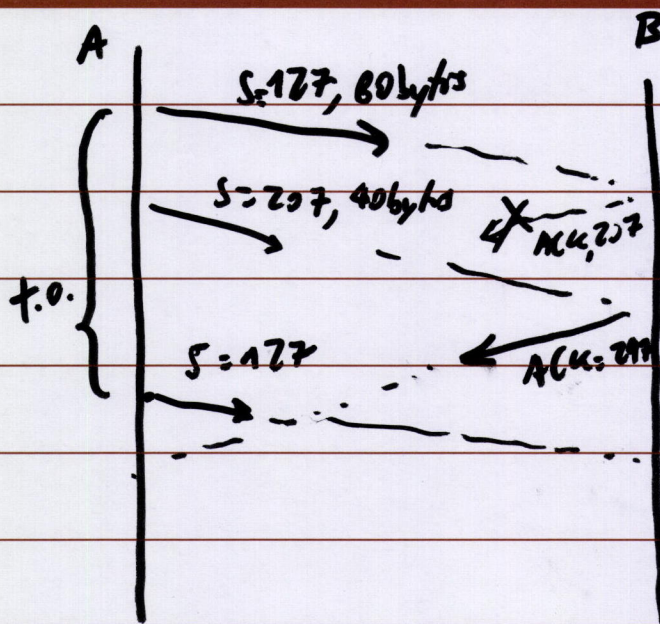 A
B
S=127, 80bytes
S=207, 40bytes
ACK,207
t.o.
S=127
ACK=247